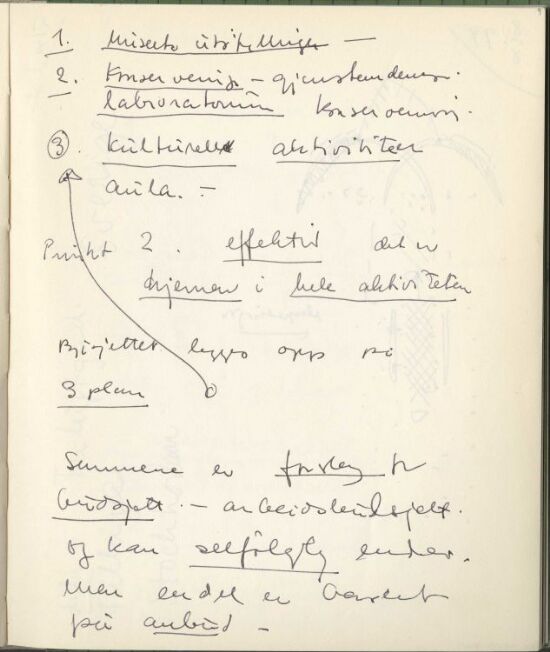 1. utstillinger —
2. Konservering – gjenstandene.
laboratorium konservering.
3. kulturelle aktiviteter
aula. —
Punkt 2. effektiv det er
kjernen i hele aktiviteten
Budsjettet legges opp på
3 plan
Summene er forslag for
budsjett. – arbeidsbudsjett.
og kan selfölgelig endres.
Men endel er basert
på anbud –